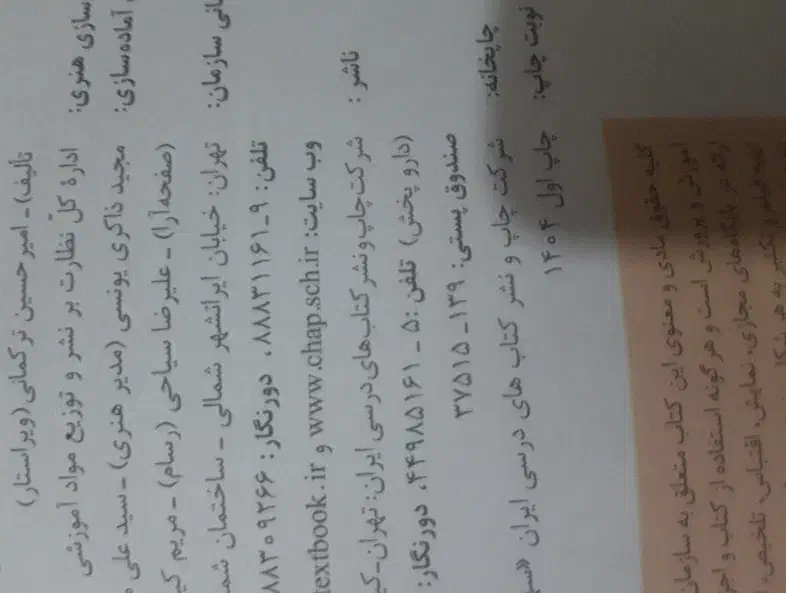 تألیف) - امیرحسین ترکمانی (ویراستار)
ادارهٔ کلّ نظارت بر نشر و توزیع مواد آموزشی
سازی هنری:
آماده‌سازی: مجید ذاکری یونسی (مدیر هنری) - سید علی
(صفحه‌آرا) - علیرضا سیاحی (رسام) - مریم
سازمان: تهران: خیابان ایرانشهر شمالی - ساختمان
تلفن: ۹-۸۸۸۳۱۱۶۱، دورنگار: ۸۸۳۰۹۲۶۶
وب سایت: www.chap.sch.ir و textbook.ir
ناشر: شرکت چاپ و نشر کتاب‌های درسی ایران: تهران-
(دارو پخش) تلفن: ۵-۴۴۹۸۵۱۶۱، دورنگار:
صندوق پستی: ۱۳۹-۳۷۵۱۵
چاپخانه: شرکت چاپ و نشر کتاب های درسی ایران
نوبت چاپ: چاپ اول ۱۴۰۴
کلیه حقوق مادی و معنوی این کتاب متعلق به سازمان
آموزش و پرورش است و هرگونه استفاده از کتاب و
ارائه در پایگاه‌های مجازی، نمایش، اقتباس، تلخیص،